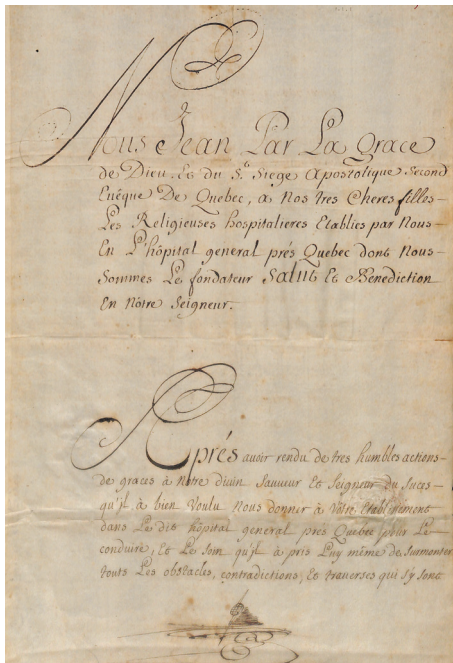 Nous Jean Par La grace
de Dieu, Et du St. Siege Apostolique Second
Evêque De Quebec, a Nos tres Cheres filles
Les Religieuses hospitalieres Etablies par Nous
En L'hôpital general prés Quebec dont Nous
Sommes Le fondateur Salut Et Benediction
En Nôtre Seigneur.
Aprés avoir rendu de tres humbles actions
de graces à Nôtre divin Sauveur Et Seigneur du Succes
qu'jl à bien Voulu Nous donner à Vôtre Etablissement
dans Le dit hôpital general prés Quebec pour Le
conduire, Et Le Soin qu'jl à pris Luy même de Surmonter
touts Les obstacles, contradictions, Et traverses qui s'y Sont